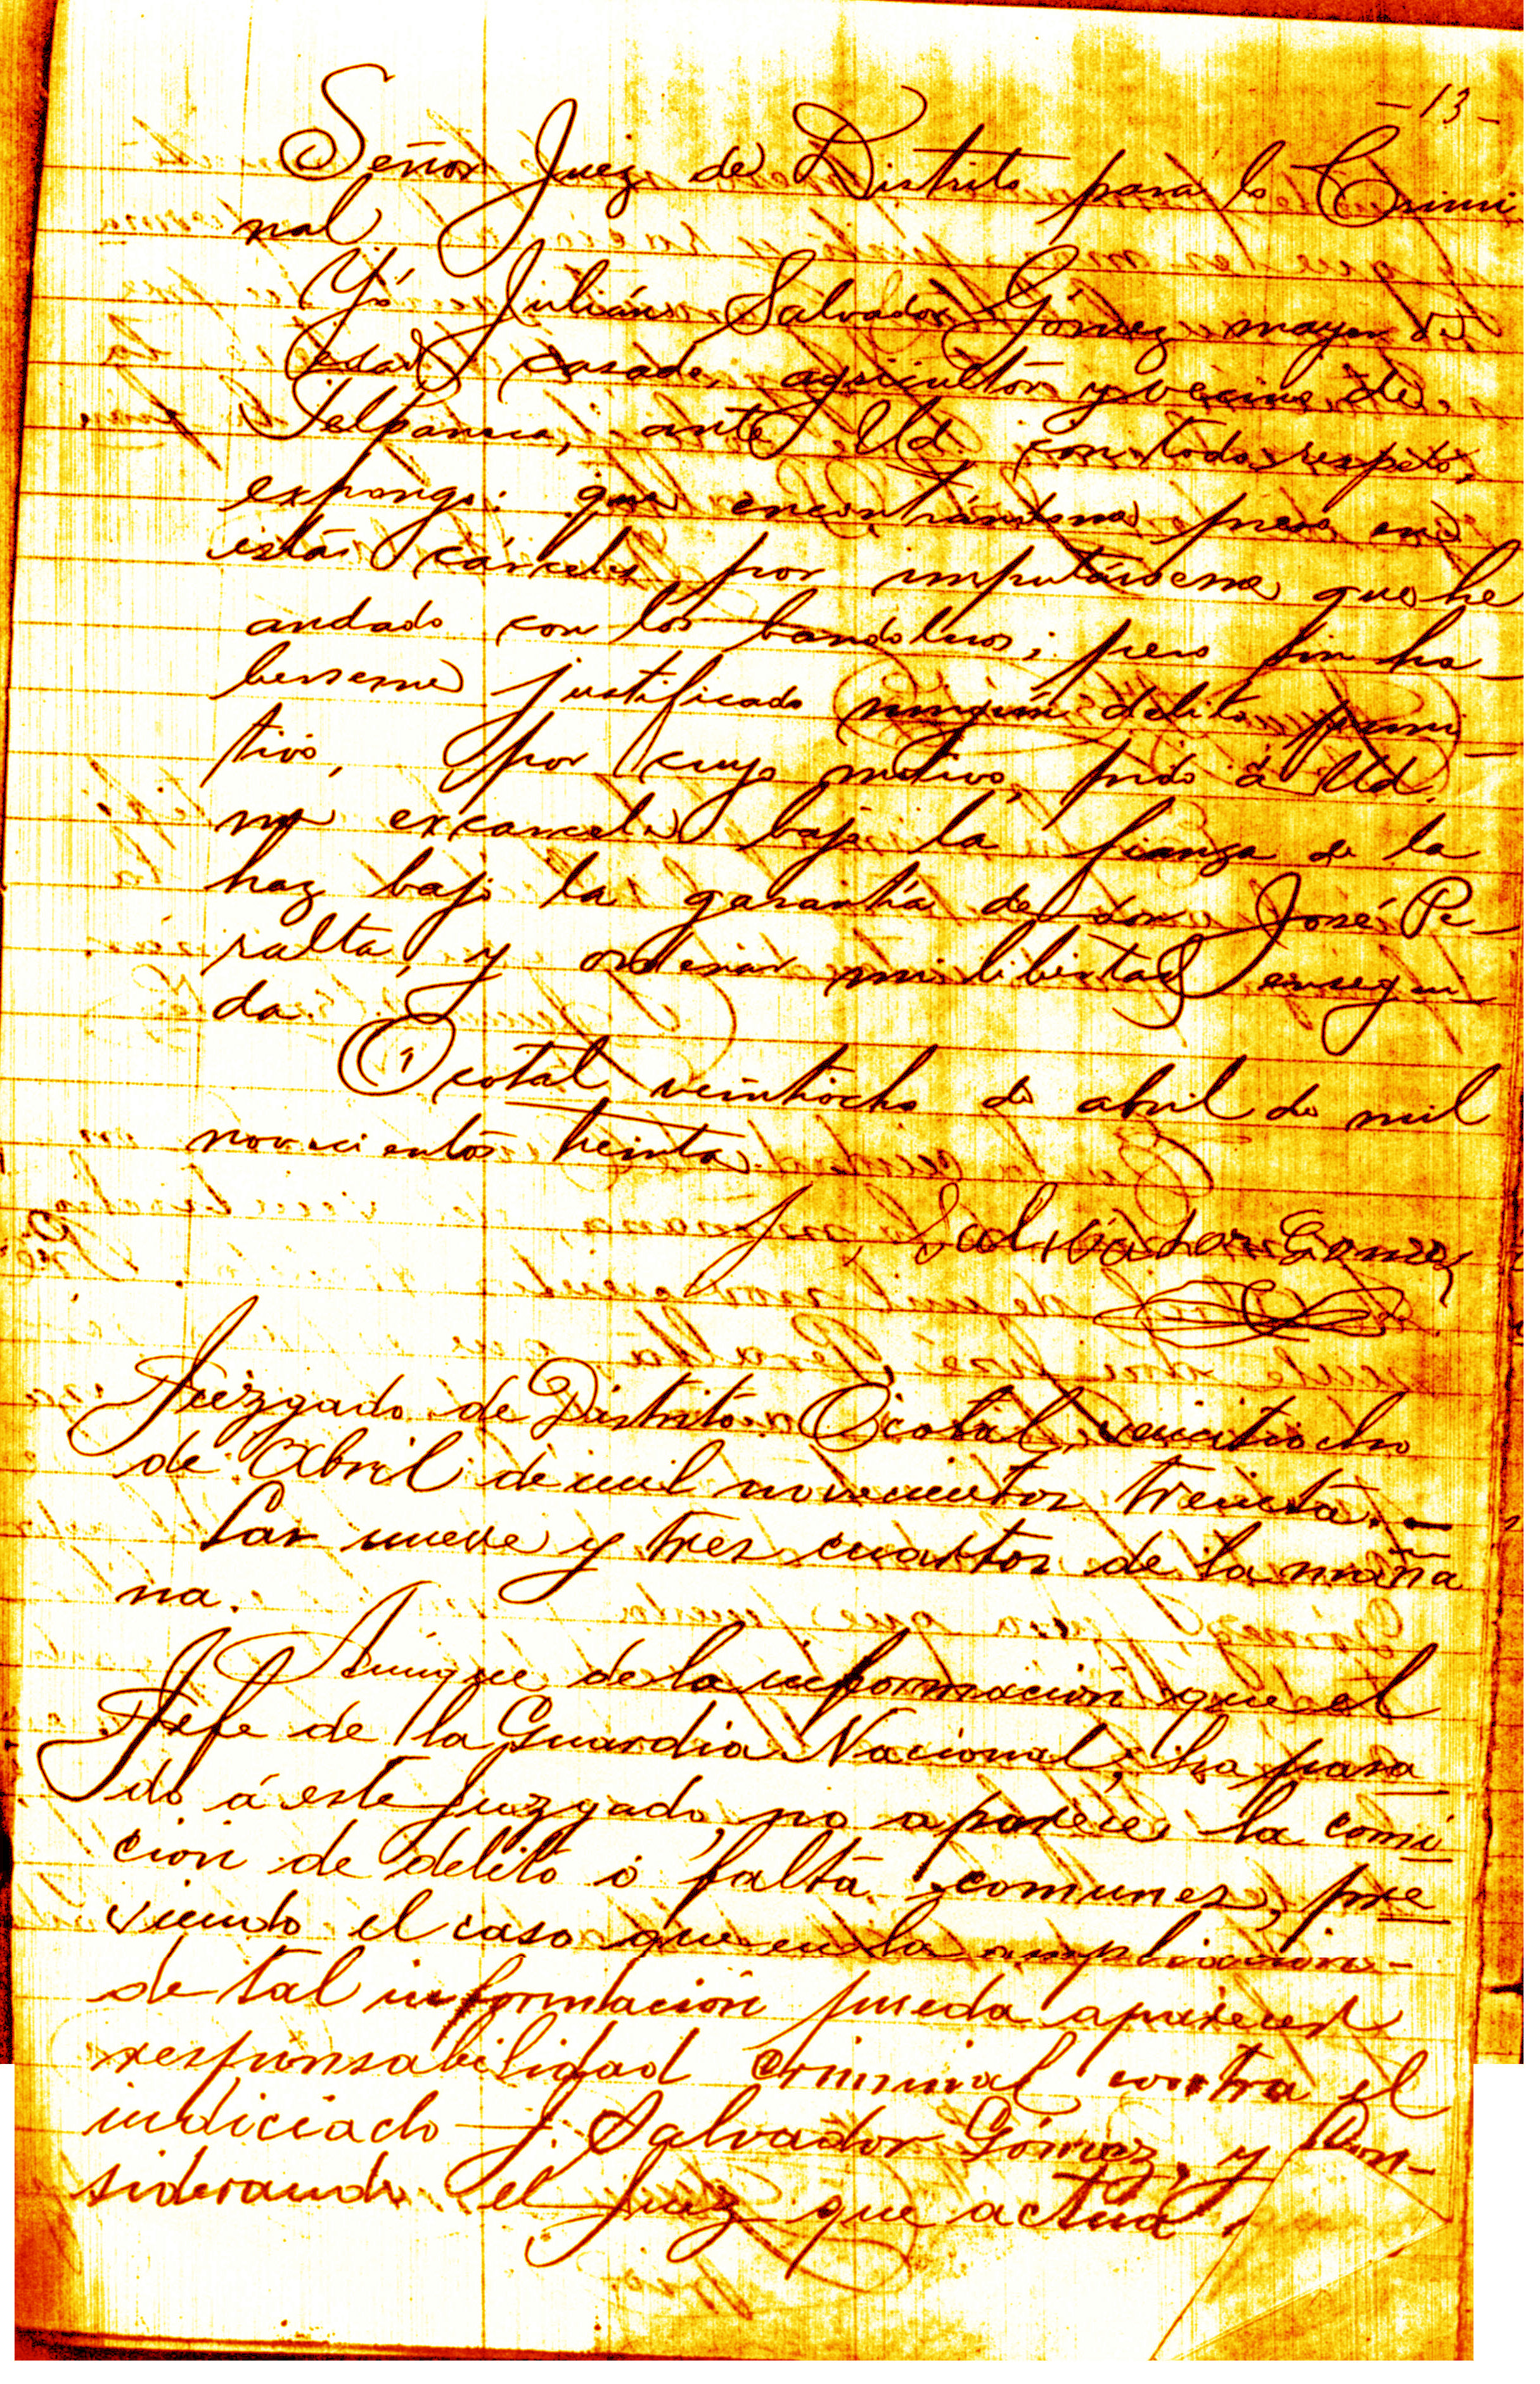 - 13 -
Señor Juez de Distrito para lo Crimi
nal
Yó Julián Salvador Gómez mayor de
edad casado, agricultor y vecino de
Telpaneca, ante Ud. con todo respeto,
expongo: que encontrándome preso en
estás cárceles por imputárseme que he
andado con los bandoleros; pero sin ha_
berseme justificado ningún delito puni_
tivo, por cuyo motivo, pido á Ud.
me excarcele bajo la fianza de la
haz bajo la garantía de don José Pe_
ralta, y ordenar mi libertad ensegui_
da.
Ocotal veintiocho de abril de mil
novecientos treinta.
J Salvador Gomez
Juzgado de Distrito. Ocotal, veintiocho
de Abril de mil novecientos treinta. -
Las nueve y tres cuartos de la maña
na.
Aunque de la información que el
Jefe de la Guardia Nacional, ha pasa
do á este Juzgado, no aparece la comi
cion de delito ó falta comunes, pre
viendo el caso que en la ampliación -
de tal información pueda aparecer
responsabilidad criminal contra el
indiciado J. Salvador Gómez, y Con-
siderando el Juez que actúa,